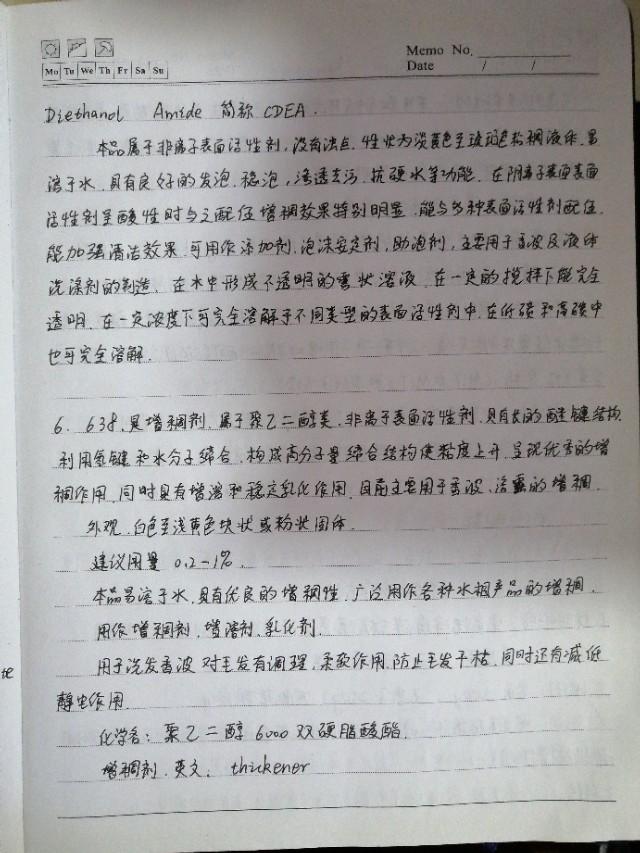 Memo No.
Mo Tu We Th Fr Sa Su
Date / /
Diethanol Amide 简称 CDEA.
本品属于非离子表面活性剂,没有浊点.性状为淡黄色至琥珀色粘稠液体,易
溶于水.具有良好的发泡.稳泡,渗透去污.抗硬水等功能.在阴离子表面
活性剂呈酸性时与之配伍增稠效果特别明显.能与多种表面活性剂配伍.
能加强清洁效果.可用作添加剂,泡沫安定剂,助泡剂,主要用于香波及液体
洗涤剂的制造.在水中形成不透明的雾状溶液.在一定的搅拌下能完全
透明.在一定浓度下可完全溶解于不同类型的表面活性剂中.在低碳和高碳中
也可完全溶解.
6. 638.是增稠剂.属于聚乙二醇类.非离子表面活性剂.具有长的醚键结构.
利用氢键和水分子缔合.构成高分子量缔合结构使粘度上升.呈现优秀的增
稠作用.同时具有增溶和稳定乳化作用.目前主要用于香波.洁露的增稠.
外观.白色至浅黄色块状或粉状固体.
建议用量 0.2-1%.
本品易溶于水.具有优良的增稠性.广泛用作各种水相产品的增稠.
用作增稠剂.增溶剂.乳化剂.
用于洗发香波 对毛发有调理.柔软作用.防止毛发干枯.同时还有减低
静电作用.
化学名: 聚乙二醇 6000 双硬脂酸酯.
增稠剂.英文. thickener